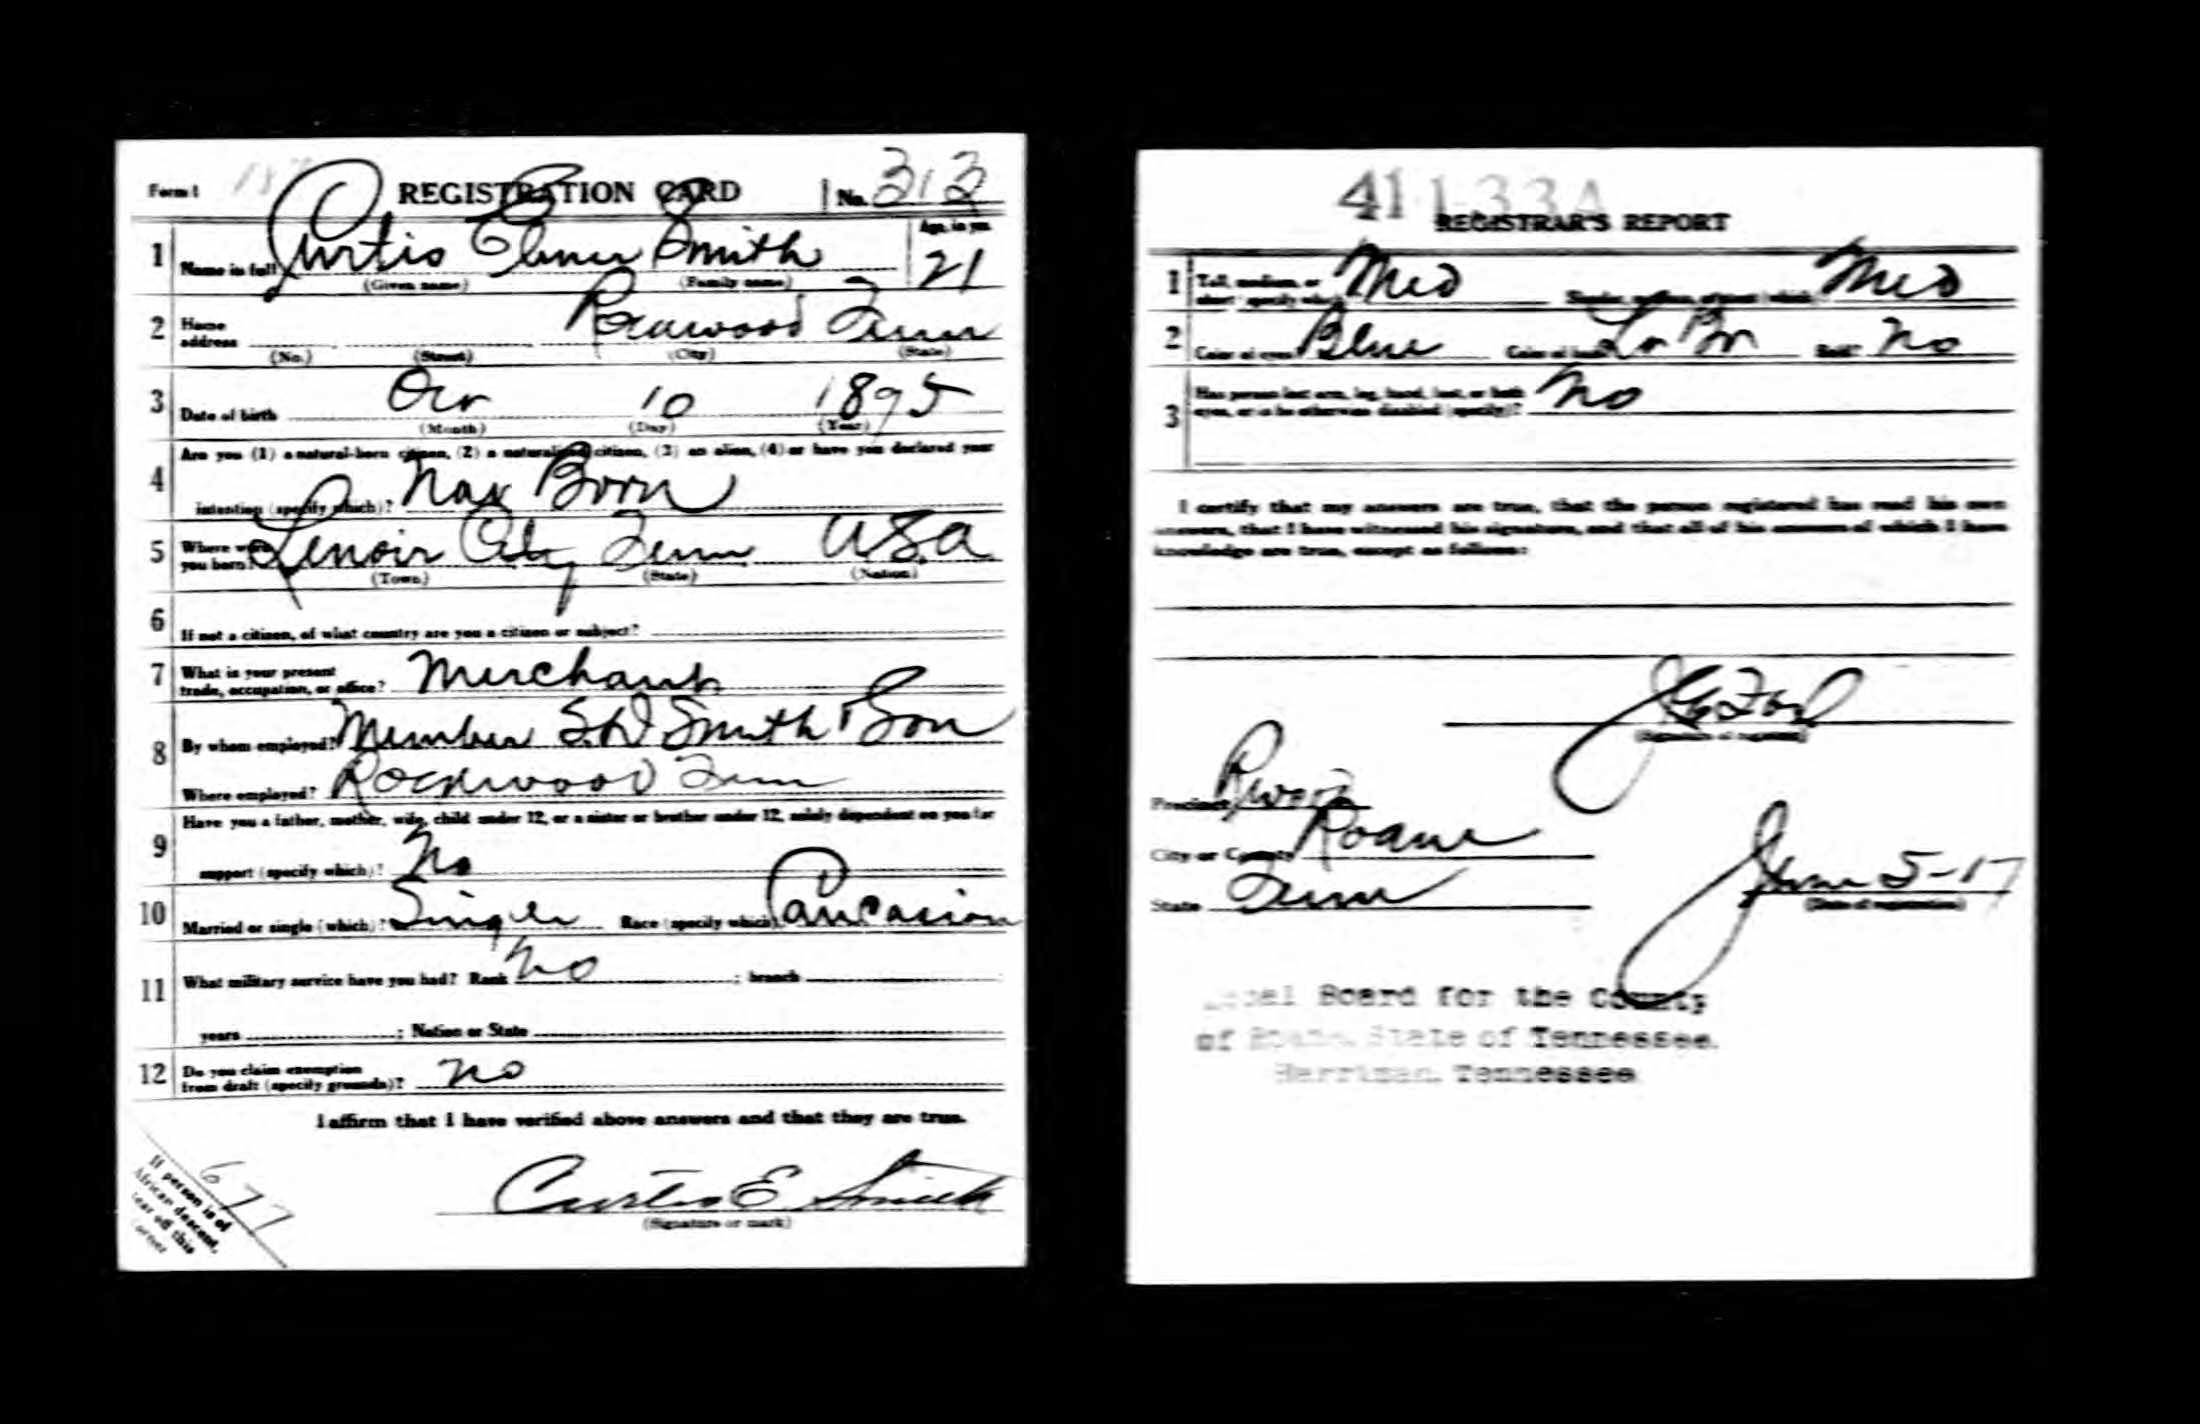 Form 1 REGISTRATION CARD No. 313
1 Name in full Curtis Elmer Smith Age, in yrs. 21
(Given name) (Family name)
2 Home address Rockwood Tenn
(No.) (Street) (City) (State)
3 Date of birth Oct 10 1895
(Month) (Day) (Year)
4 Are you (1) a natural-born citizen, (2) a naturalized citizen, (3) an alien, (4) or have you declared your
intention (specify which)? Nat Born
5 Where were you born? Lenoir City Tenn USA
(Town) (State) (Nation)
6 If not a citizen, of what country are you a citizen or subject?
7 What is your present
trade, occupation, or office? Merchant
8 By whom employed? Member S W Smith & Son
Where employed? Rockwood Tenn
9 Have you a father, mother, wife, child under 12, or a sister or brother under 12, solely dependent on you for
support (specify which)? No
10 Married or single (which)? Single Race (specify which)? Caucasian
11 What military service have you had? Rank No ; branch
years ; Nation or State
12 Do you claim exemption
from draft (specify grounds)? No
I affirm that I have verified above answers and that they are true.
Curtis E Smith
(Signature or mark)
677
If person is of
African descent,
tear off this
corner
41-1-33 A
REGISTRAR'S REPORT
1 Tall, medium, or
short (specify which)? Med Slender, medium, or stout (which)? Med
2 Color of eyes Blue Color of hair Lt Br Bald? No
3 Has person lost arm, leg, hand, foot, or both
eyes, or is he otherwise disabled (specify)? No
I certify that my answers are true, that the person registered has read his own
answers, that I have witnessed his signature, and that all of his answers of which I have
knowledge are true, except as follows:
(Signature of registrar)
Precinct Rwood
City or County Roane
State Tenn June 5-17
(Date of registration)
Local Board for the County
of Roane, State of Tennessee.
Harriman, Tennessee